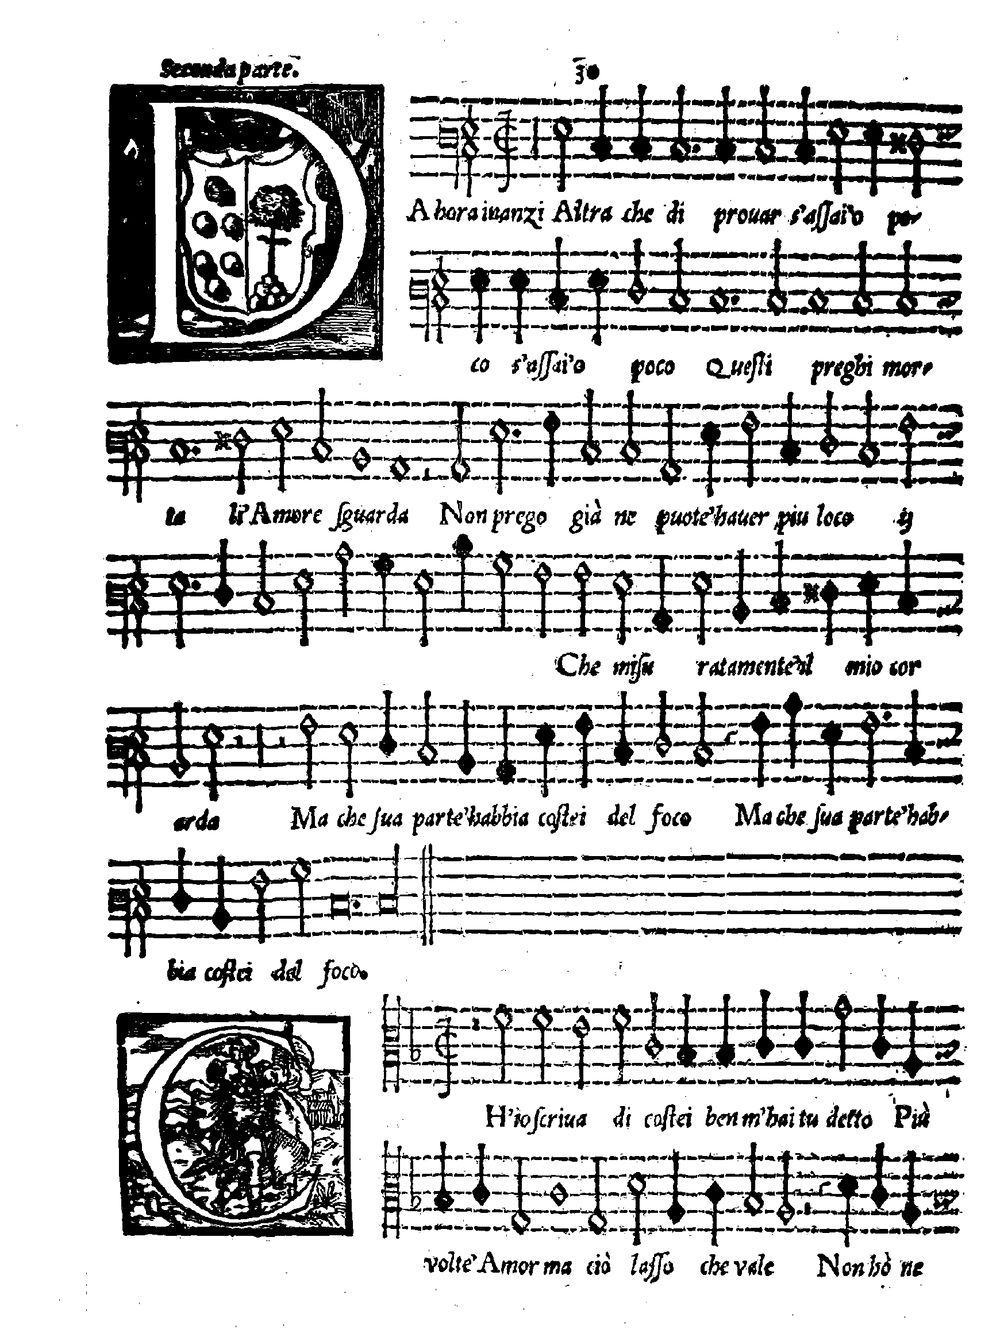 Seconda parte. 30
D
A hora inanzi Altra che di prouar s'assai'o po-
co s'assai'o poco Questi preghi mor-
ta li' Amore sguarda Non prego già ne puote'hauer piu loco ij
Che misu ratamente'il mio cor
arda Ma che sua parte'habbia costei del foco Ma che sua parte'hab-
bia costei del foco.
C
H'io scriua di costei ben m'hai tu detto Più
volte' Amor ma ciò lasso che vale Non hò ne